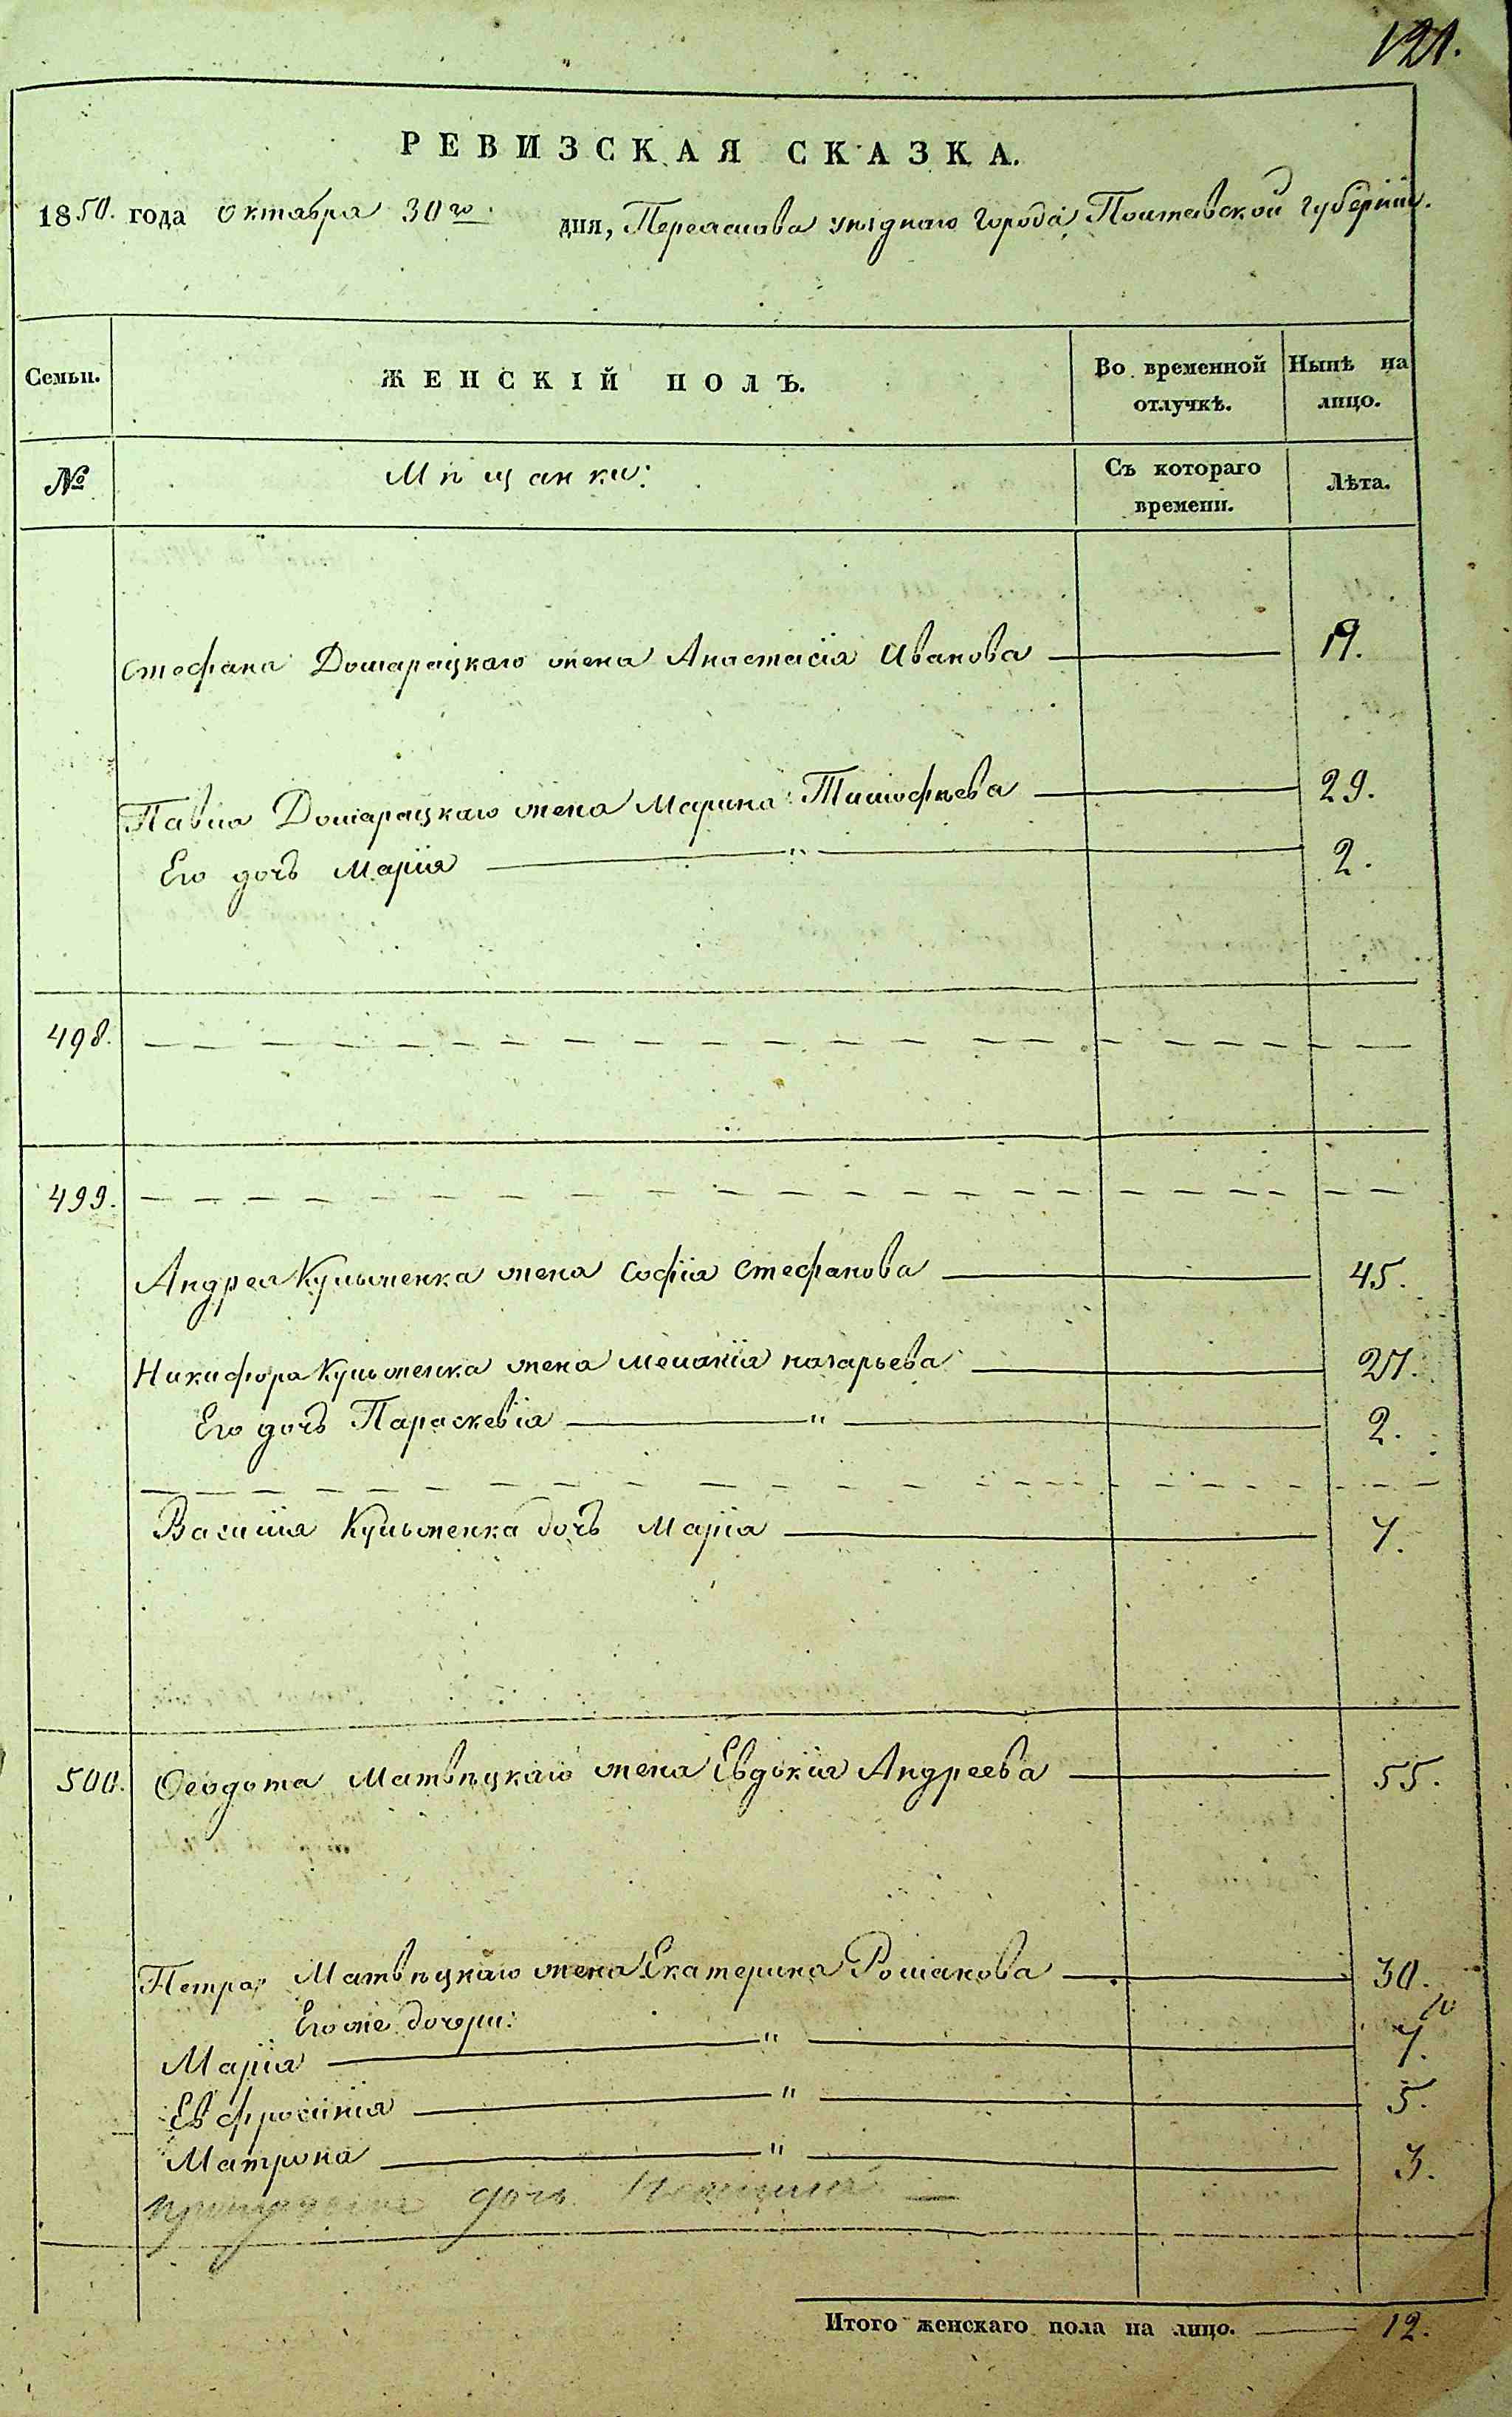 121.
РЕВИЗСКАЯ СКАЗКА.
1850. года октабра 30го. дня, Переяслова уѣзднаго города, Полтавской губерніи.
Семьи. ЖЕНСКІЙ ПОЛЪ. Во временной отлучкѣ. Нынѣ на лицо.
№ Мѣщанки: Съ котораго времени. Лѣта.
Стефана Домарацкаго жена Анастасія Иванова 19.
Павла Домарацкаго жена Марина Тимофѣева 29.
Его дочь Марія " 2.
498.
499.
Андрея Кульженка жена Софія Стефанова 45.
Никифора Кульженка жена Меланія Назарьева 27.
Его дочь Параскевія " 2.
Василия Кульженка дочь Марія 7.
500. Феодота Матвѣцкаго жена Евдокія Андреева 55.
Петра Матвѣцкаго жена Екатерина Романова 30.
Его же дочери:
Марія " 7.
Евфросинія " 5.
Матрона " 3.
дочь
Итого женскаго пола на лицо. 12.